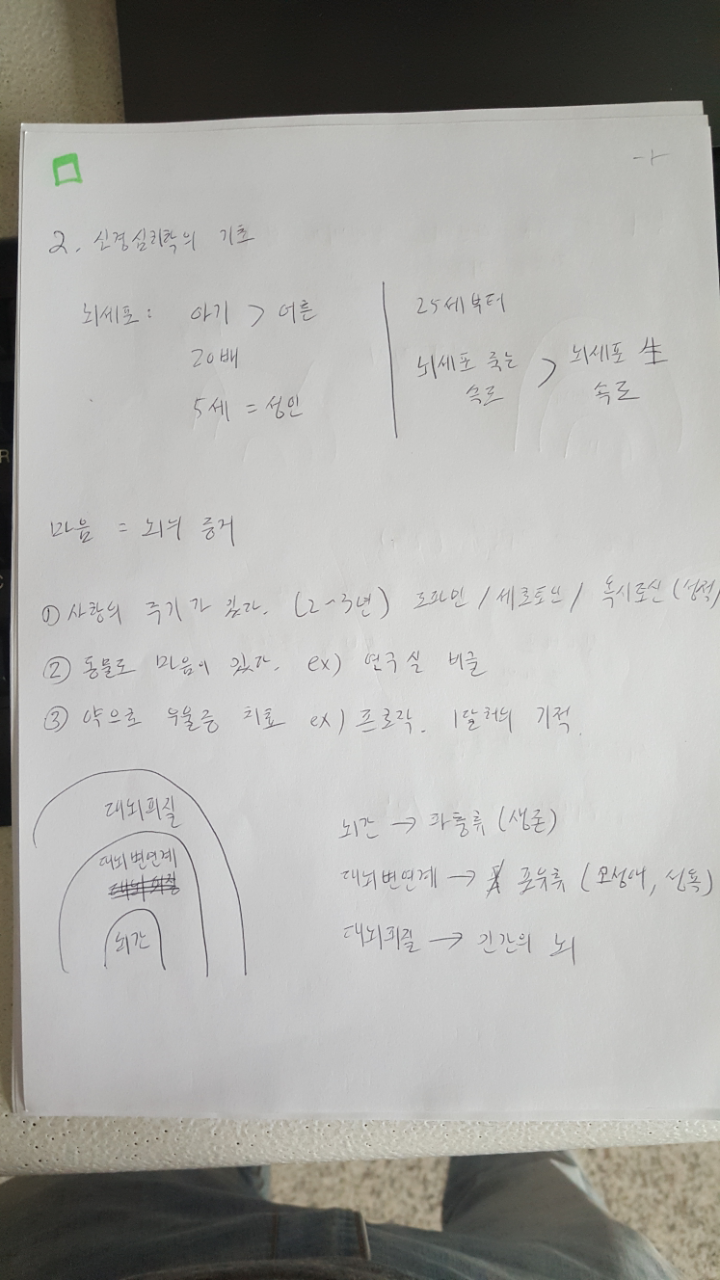 2. 신경심리학의 기초
뇌세포: 아기 > 어른
20배
5세 = 성인
25세부터
뇌세포 죽는 속도 > 뇌세포 生 속도
마음 = 뇌의 증거
① 사랑의 주기가 있다. (2~3년) 도파민 / 세로토닌 / 옥시토신 (성적
② 동물도 마음이 있다. ex) 연구실 비글
③ 약으로 우울증 치료 ex) 프로작. 1달러의 기적.
대뇌피질
대뇌변연계
뇌간
뇌간 → 파충류 (생존)
대뇌변연계 → 포유류 (모성애, 성욕)
대뇌피질 → 인간의 뇌